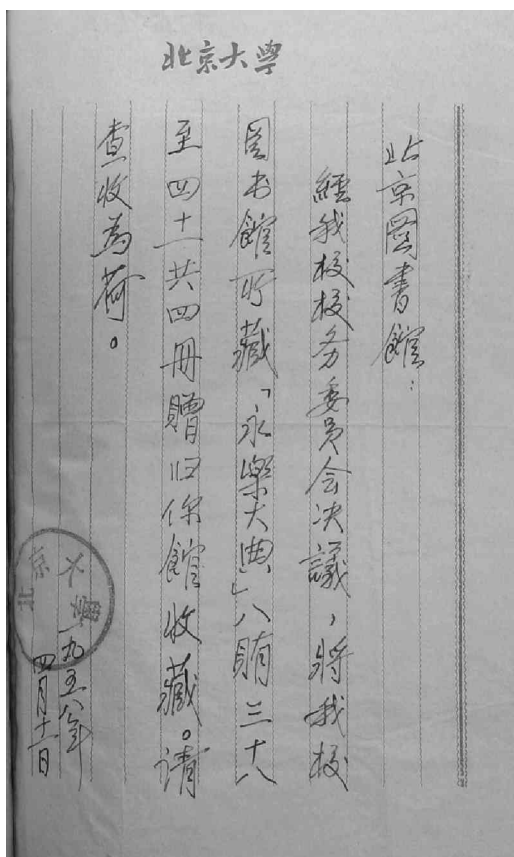 北京大學
北京圖書館：
經我校校务委員会决議，將我校
图书館所藏「永樂大典」八賄三十八
至四十一共四冊贈归你館收藏。请
查收為荷。
北京大學
一九五八年
四月十一日